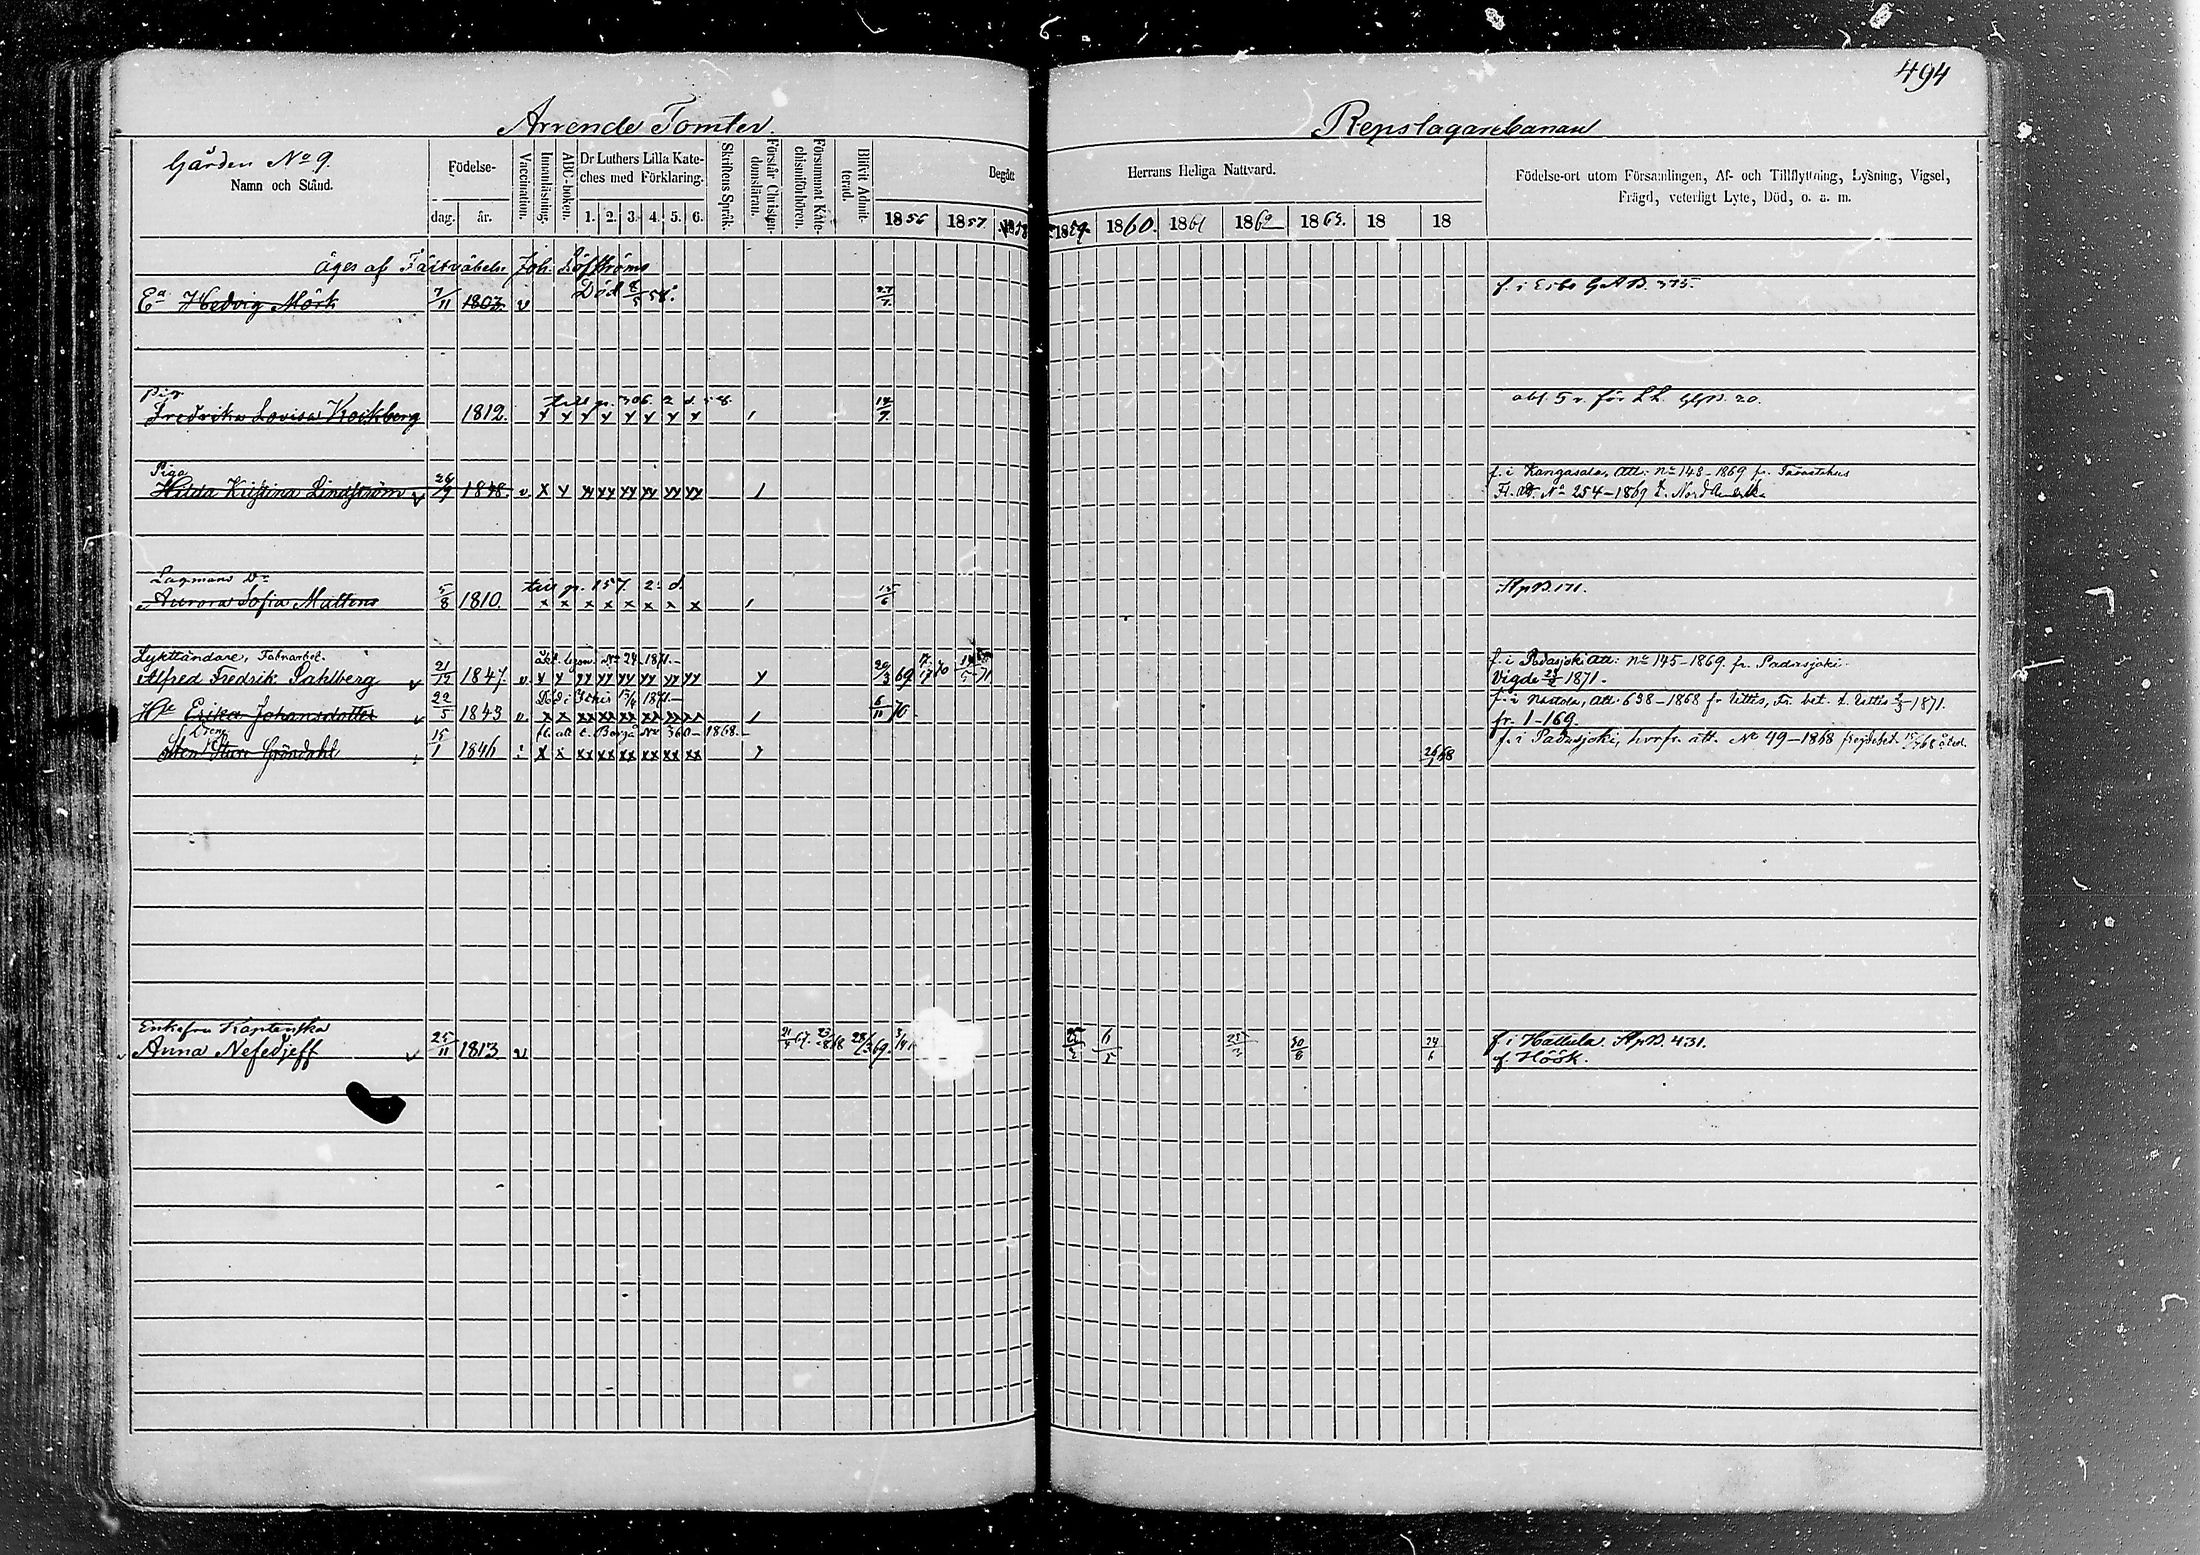 494
Arrende Tomter.
Repslagarebanan
Gården No 9.
Namn och Stånd.
Födelse-
dag. år.
Vaccination.
Innanläsning.
ABC-boken.
Dr Luthers Lilla Kate-
ches med Förklaring.
1. 2. 3. 4. 5. 6.
Skriftens Språk.
Förstår Christen-
domsläran.
Försummat Kate-
chismiförhören.
Blifvit Admit-
terad.
Degått
Herrans Heliga Nattvard.
1856 1857 1858 1859 1860. 1861 1862 1863. 18 18
Födelse-ort utom Församlingen, Af- och Tillflyttning, Lysning, Vigsel,
Frägd, veterligt Lyte, Död, o. s. m.
äges af Fältväbeln Joh. Löfströms
Ea Hedvig Mörk 7/11 1803. v Död 8/5 58. 27/7
Pig
Fredrika Lovisa 1812. till p. 306. 2 d.
y y y y y y y y 1
f. Lk.
Piga
Hilda Kristina Lindström v 26/9 1848. v. x y yy yy yy yy yy yy 1
f. i Kangasala, Att: No 148-1869 fr. Tavastehus
Fl. att. No 254-1869 t. Nord Amerika
Lagmans Dr
Aurora Sofia 5/8 1810. till p. 157. 2. d.
x x x x x x x x 1 15/6
KpB. 171.
Lykttändare, Fabrarbet.
Alfred Fredrik Pahlberg v 21/12 1847. v. y y yy yy yy yy yy yy y 20/3 69
No 24-1871.-
f. i Padasjoki Att: No 145-1869. fr. Padasjoki.
Vigde 1871.
Hu Erika Johansdotter v 22/5 1843 v. x x xx xx xx xx xx xx 1 6/11 70.
Död i 1871.-
f. i Nastola, Att. 638-1868 fr Iittis, Fr. bet. t. Iittis 1871.
fr. 1-169.
Dreng
Sten Sture Gröndahl 15/1 1846 x x xx xx xx xx xx xx
fl. att t. Borgå No 360-1868.-
26/1 68
f. i Padasjoki, hvarfr. att. No 49-1868
Enkefru Kaptenska
Anna Nefedjeff v 25/11 1813 v
25/3 6/5 25/3 30/8 24/6
f. i Hattula. KpB. 431.
f. Höök.